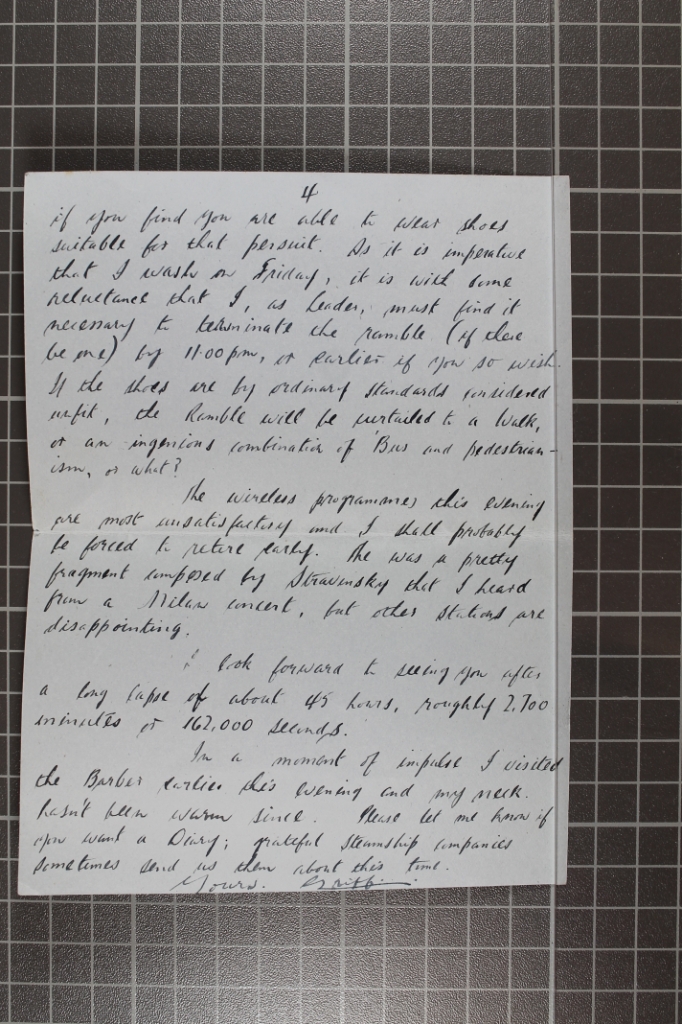 4
if you find you are able to wear shoes
suitable for that persuit. As it is imperative
that I wash on Friday, it is with some
reluctance that I, as Leader, must find it
necessary to terminate the ramble (if there
be one) by 11.00pm, or earlier if you so wish.
If the shoes are by ordinary standards considered
unfit, the Ramble will be curtailed to a Walk,
or an ingenious combination of Bus and pedestrian-
ism, or what?
The wireless programmes this evening
are most unsatisfactory and I shall probably
be forced to retire early. The was a pretty
fragment composed by Stravinsky that I heard
from a Milan concert, but other stations are
disappointing.
I look forward to seeing you after
a long lapse of about 45 hours, roughly 2,700
minutes or 162,000 seconds.
In a moment of impulse I visited
the Barber earlier this evening and my neck
hasn't been warm since. Please let me know if
you want a Diary; grateful steamship companies
sometimes send us them about this time.
Yours.